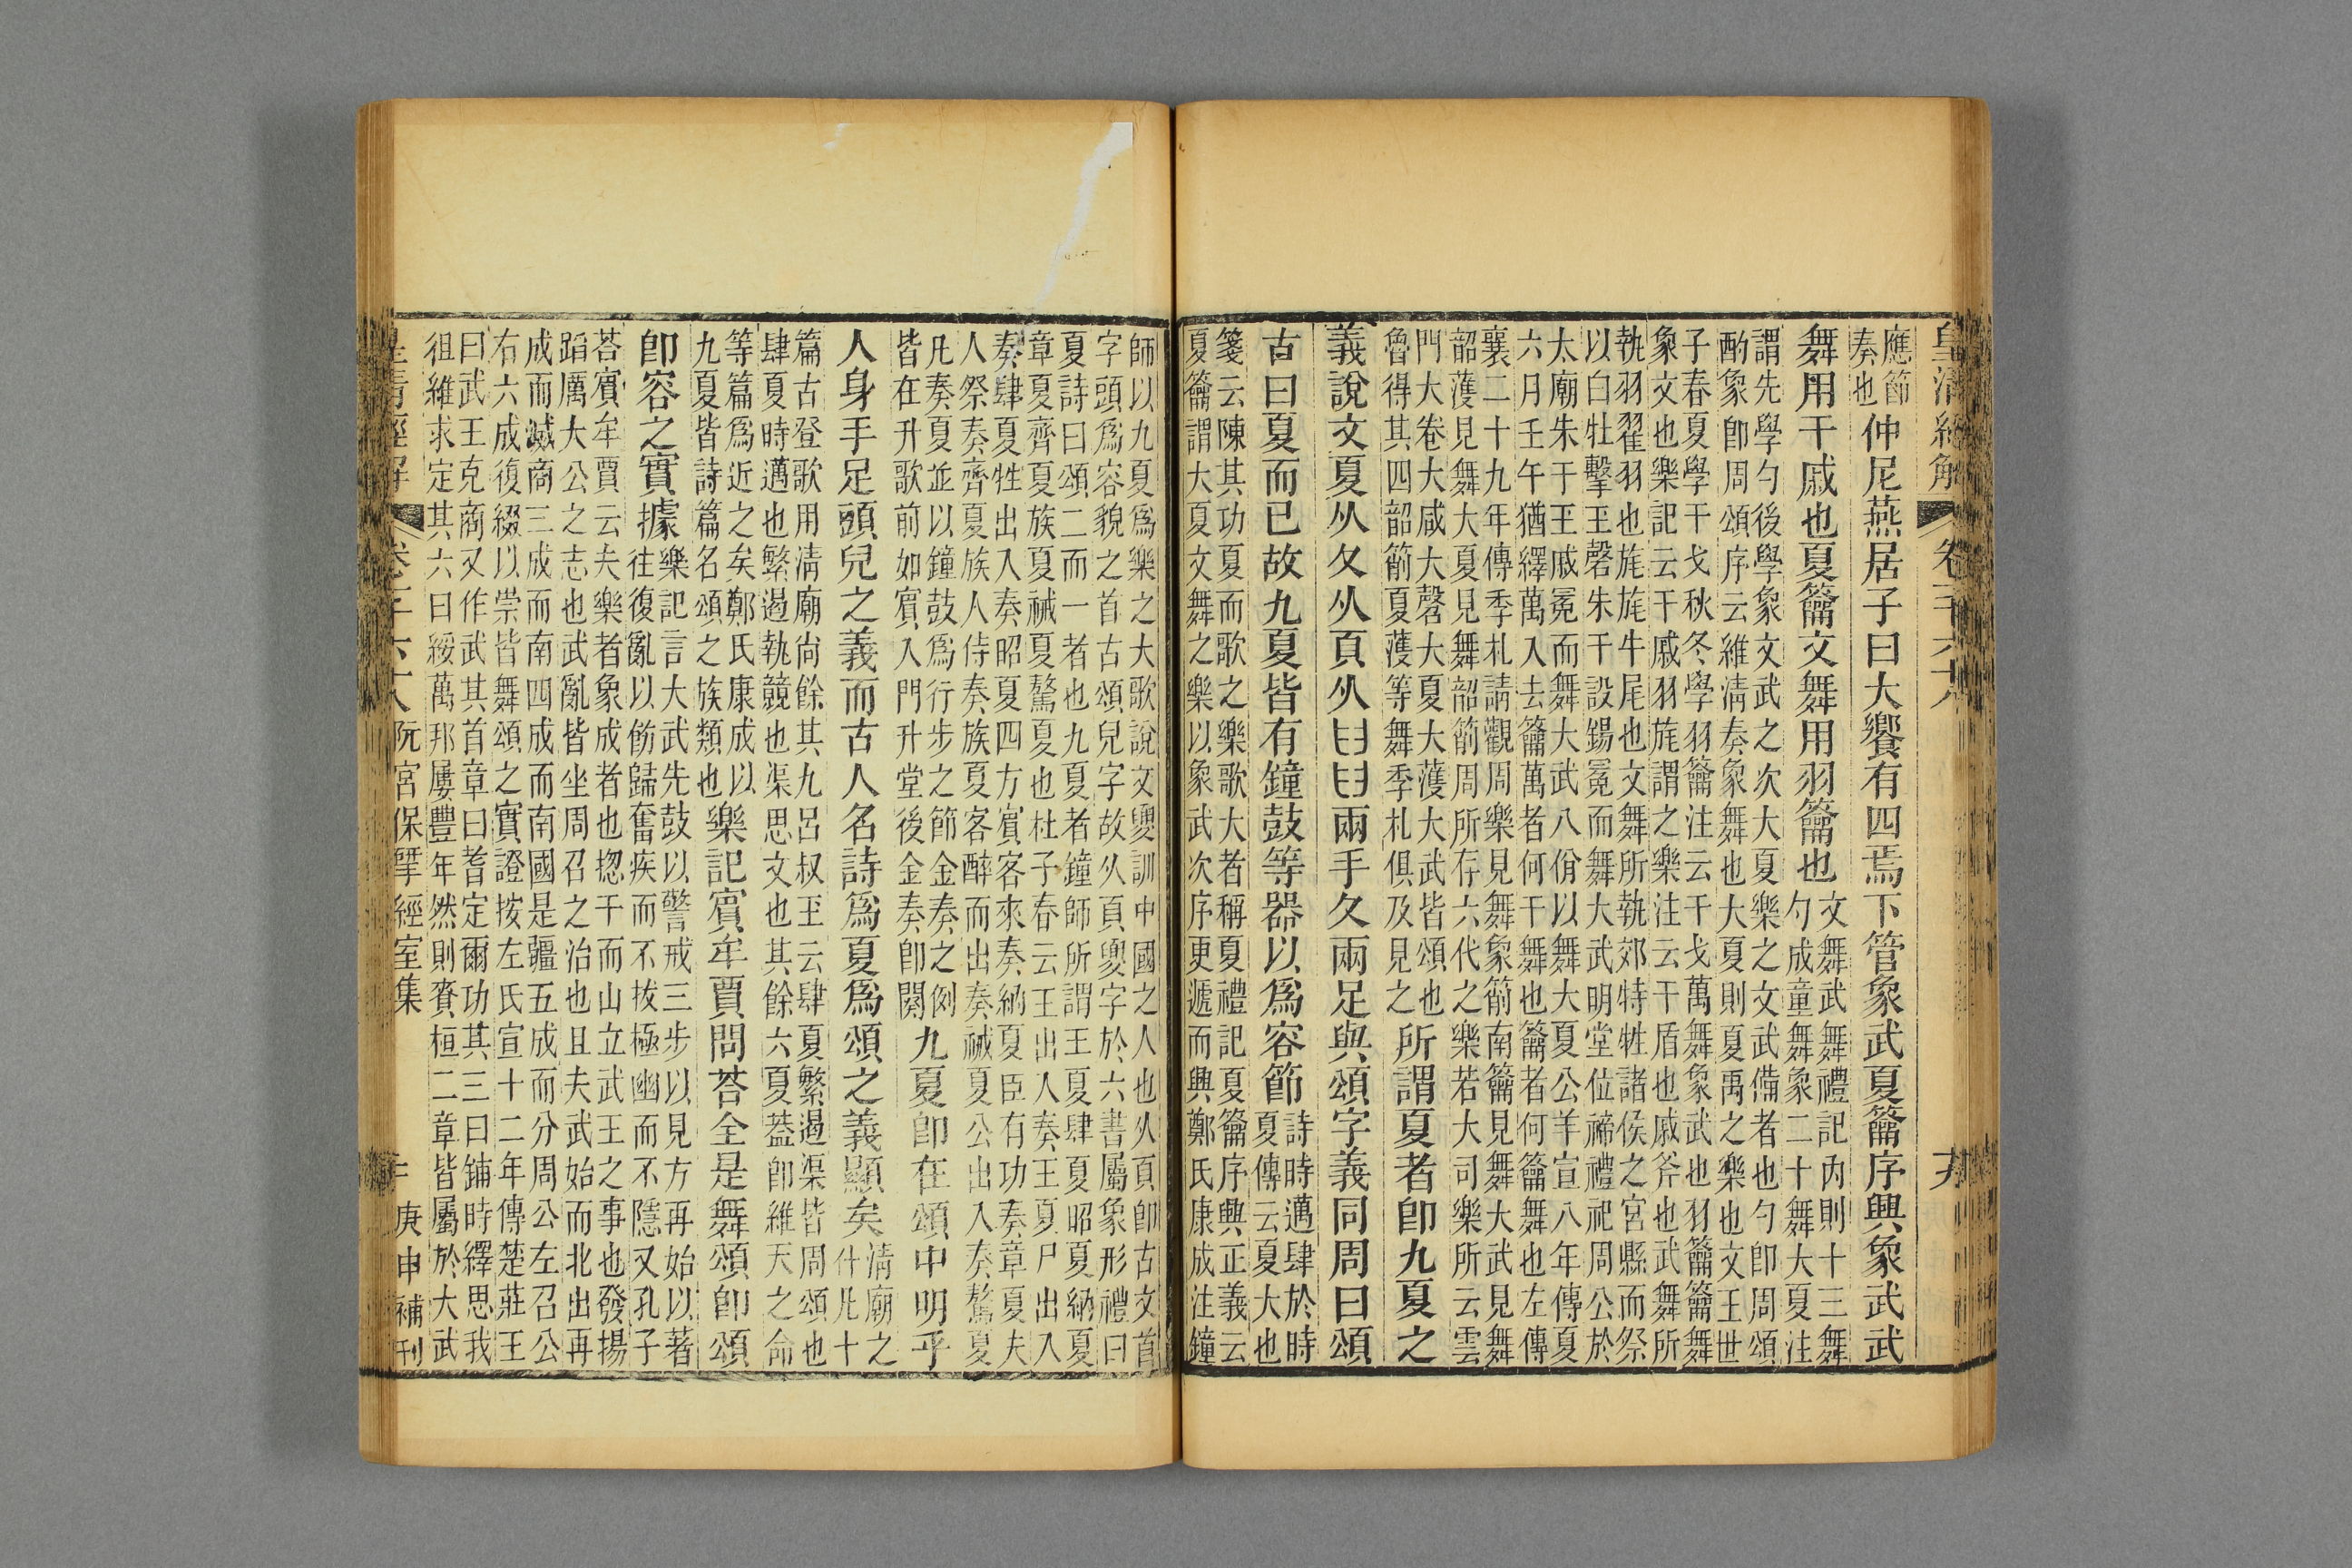 皇清經解　卷一千六十八　十九
應節
奏也
仲尼燕居子曰大饗有四焉下管象武夏籥序興象武武
舞用干戚也夏籥文舞用羽籥也
文舞武舞禮記內則十三舞
勺成童舞象二十舞大夏注
謂先學勺後學象文武之次大夏樂之文武備者也勺即周頌
酌象即周頌序云維清奏象舞也大夏則夏禹之樂也文王世
子春夏學干戈秋冬學羽籥注云干戈萬舞象武也羽籥籥舞
象文也樂記云干戚羽旄謂之樂注云干盾也戚斧也武舞所
執羽翟羽也旄旄牛尾也文舞所執郊特牲諸侯之宮縣而祭
以白牡擊玉磬朱干設錫冕而舞大武明堂位禘禮祀周公於
太廟朱干玉戚冕而舞大武八佾以舞大夏公羊宣八年傳夏
六月壬午猶繹萬入去籥萬者何干舞也籥者何籥舞也左傳
襄二十九年傳季札請觀周樂見舞象箾南籥見舞大武見舞
韶濩見舞大夏見舞韶箾周所存六代之樂若大司樂所云雲
門大卷大咸大磬大夏大濩大武皆頌也
魯得其四韶箾夏濩等舞季札俱及見之
所謂夏者即九夏之
義說文夏从夊从頁从𦥑𦥑兩手夊兩足與頌字義同周曰頌
古曰夏而已故九夏皆有鐘鼓等器以爲容節
詩時邁肆於時
夏傳云夏大也
箋云陳其功夏而歌之樂歌大者稱夏禮記夏籥序興正義云
夏籥謂大夏文舞之樂以象武次序更遞而興鄭氏康成注鐘
師以九夏爲樂之大歌說文夓訓中國之人也从頁即古文首
字頭爲容貌之首古頌兒字故从頁夓字於六書屬象形禮曰
夏詩曰頌二而一者也九夏者鐘師所謂王夏肆夏昭夏納夏
章夏齊夏族夏祴夏驁夏也杜子春云王出人奏王夏尸出入
奏肆夏牲出入奏昭夏四方賓客來奏納夏臣有功奏章夏夫
人祭奏齊夏族人侍奏族夏客醉而出奏祴夏公出入奏驁夏
凡奏夏並以鐘鼓爲行步之節金奏之例
皆在升歌前如賓入門升堂後金奏即闋
九夏即在頌中明乎
人身手足頭兒之義而古人名詩爲夏爲頌之義顯矣
清廟之
什凡十
篇古登歌用清廟尚餘其九呂叔玉云肆夏繁遏渠皆周頌也
肆夏時邁也繁遏執競也渠思文也其餘六夏葢即維天之命
等篇爲近之矣鄭氏康成以
九夏皆詩篇名頌之族類也
樂記賓牟賈問荅全是舞頌即頌
即容之實據
樂記言大武先鼓以警戒三步以見方再始以著
往復亂以飭歸奮疾而不拔極幽而不隱又孔子
荅賓牟賈云夫樂者象成者也揔干而山立武王之事也發揚
蹈厲大公之志也武亂皆坐周召之治也且夫武始而北出再
成而滅商三成而南四成而南國是疆五成而分周公左召公
右六成復綴以崇皆舞頌之實證按左氏宣十二年傳楚莊王
曰武王克商又作武其首章曰耆定爾功其三曰鋪時繹思我
徂維求定其六曰綏萬邦屢豐年然則賚桓二章皆屬於大武
皇清經解　卷一千六十八　阮宮保揅經室集　庚申補刊